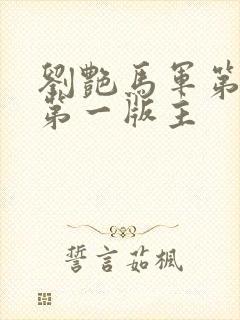 劉艷馬軍第
第一版主
誓言茹楓